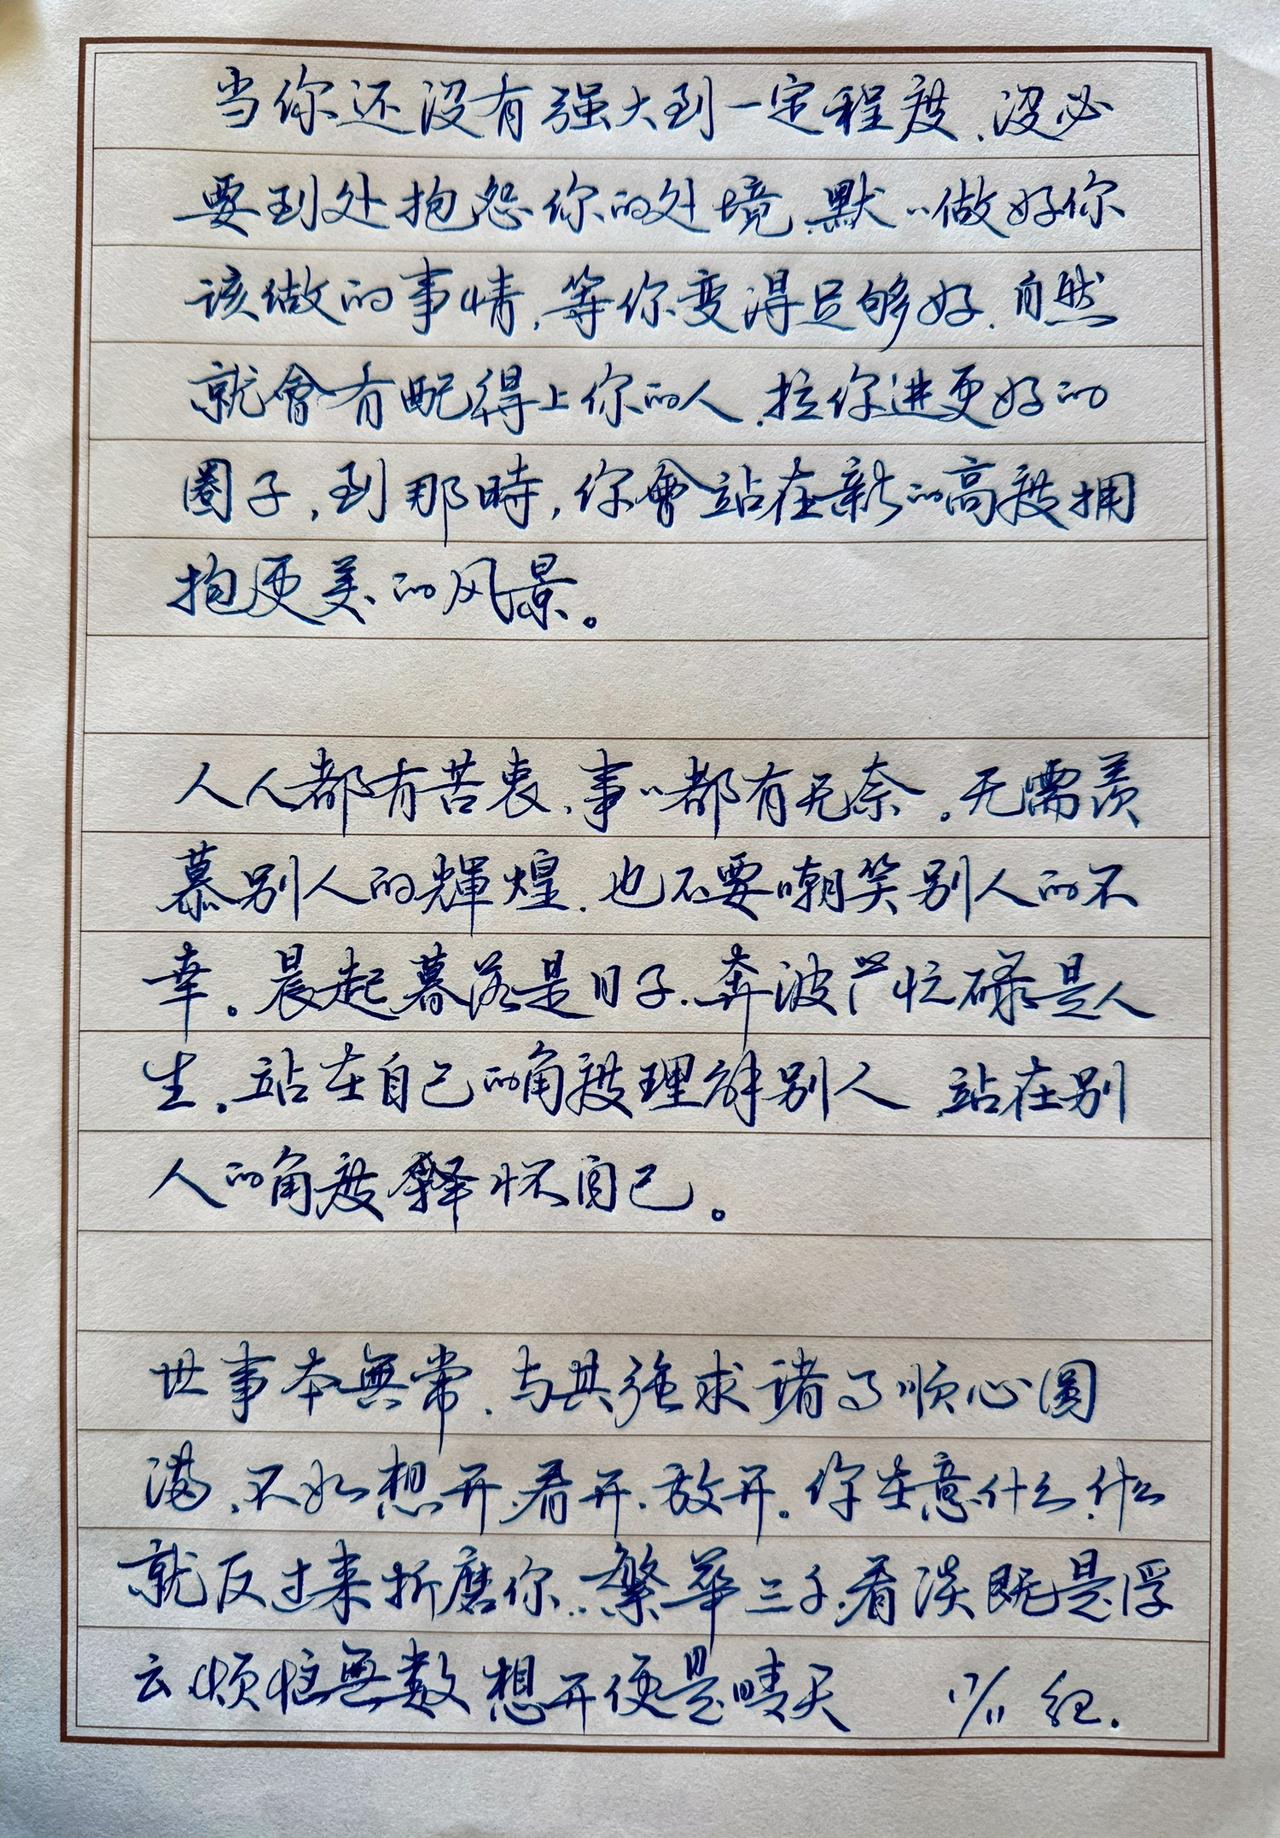 当你还没有强大到一定程度、没必
要到处抱怨你的处境、默々做好你
该做的事情，等你变得足够好、自然
就會有配得上你的人、拉你进更好的
圈子，到那時，你會站在新的高度拥
抱更美的风景。
人人都有苦衷、事々都有无奈。无需羡
慕别人的輝煌、也不要嘲笑别人的不
幸。晨起暮落是日子、奔波忙碌是人
生。站在自己的角度理解别人、站在别
人的角度釋怀自己。
世事本無常、与其强求诸事顺心圆
满、不如想开、看开、放开。你在意什么、什么
就反过来折磨你、繁華三千、看淡既是浮
云、烦恼無数、想开便是晴天 17/11 红.